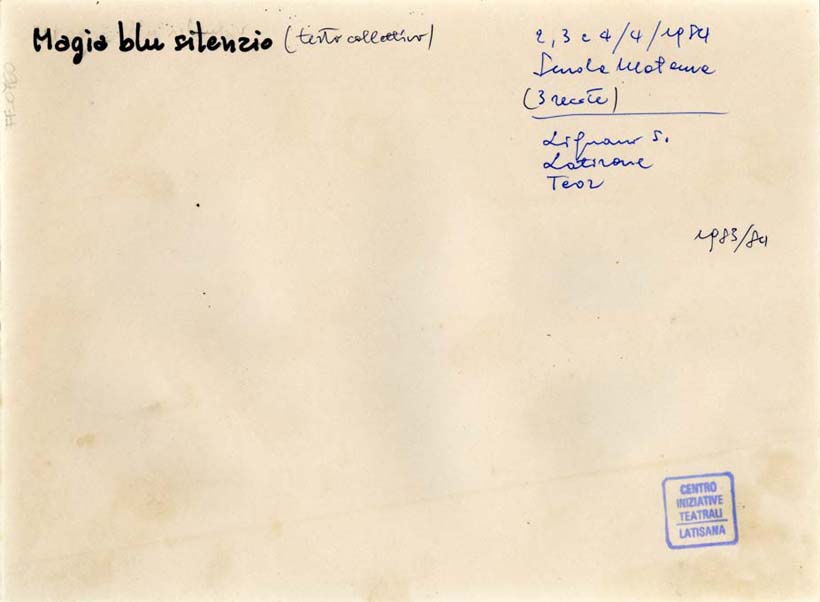 Magia blu silenzio (testo collettivo)
2, 3 e 4/4/1984
Scuola Materna
(3 recite)
Lignano S.
Latisana
Teor
1983/84
CENTRO
INIZIATIVE
TEATRALI
LATISANA